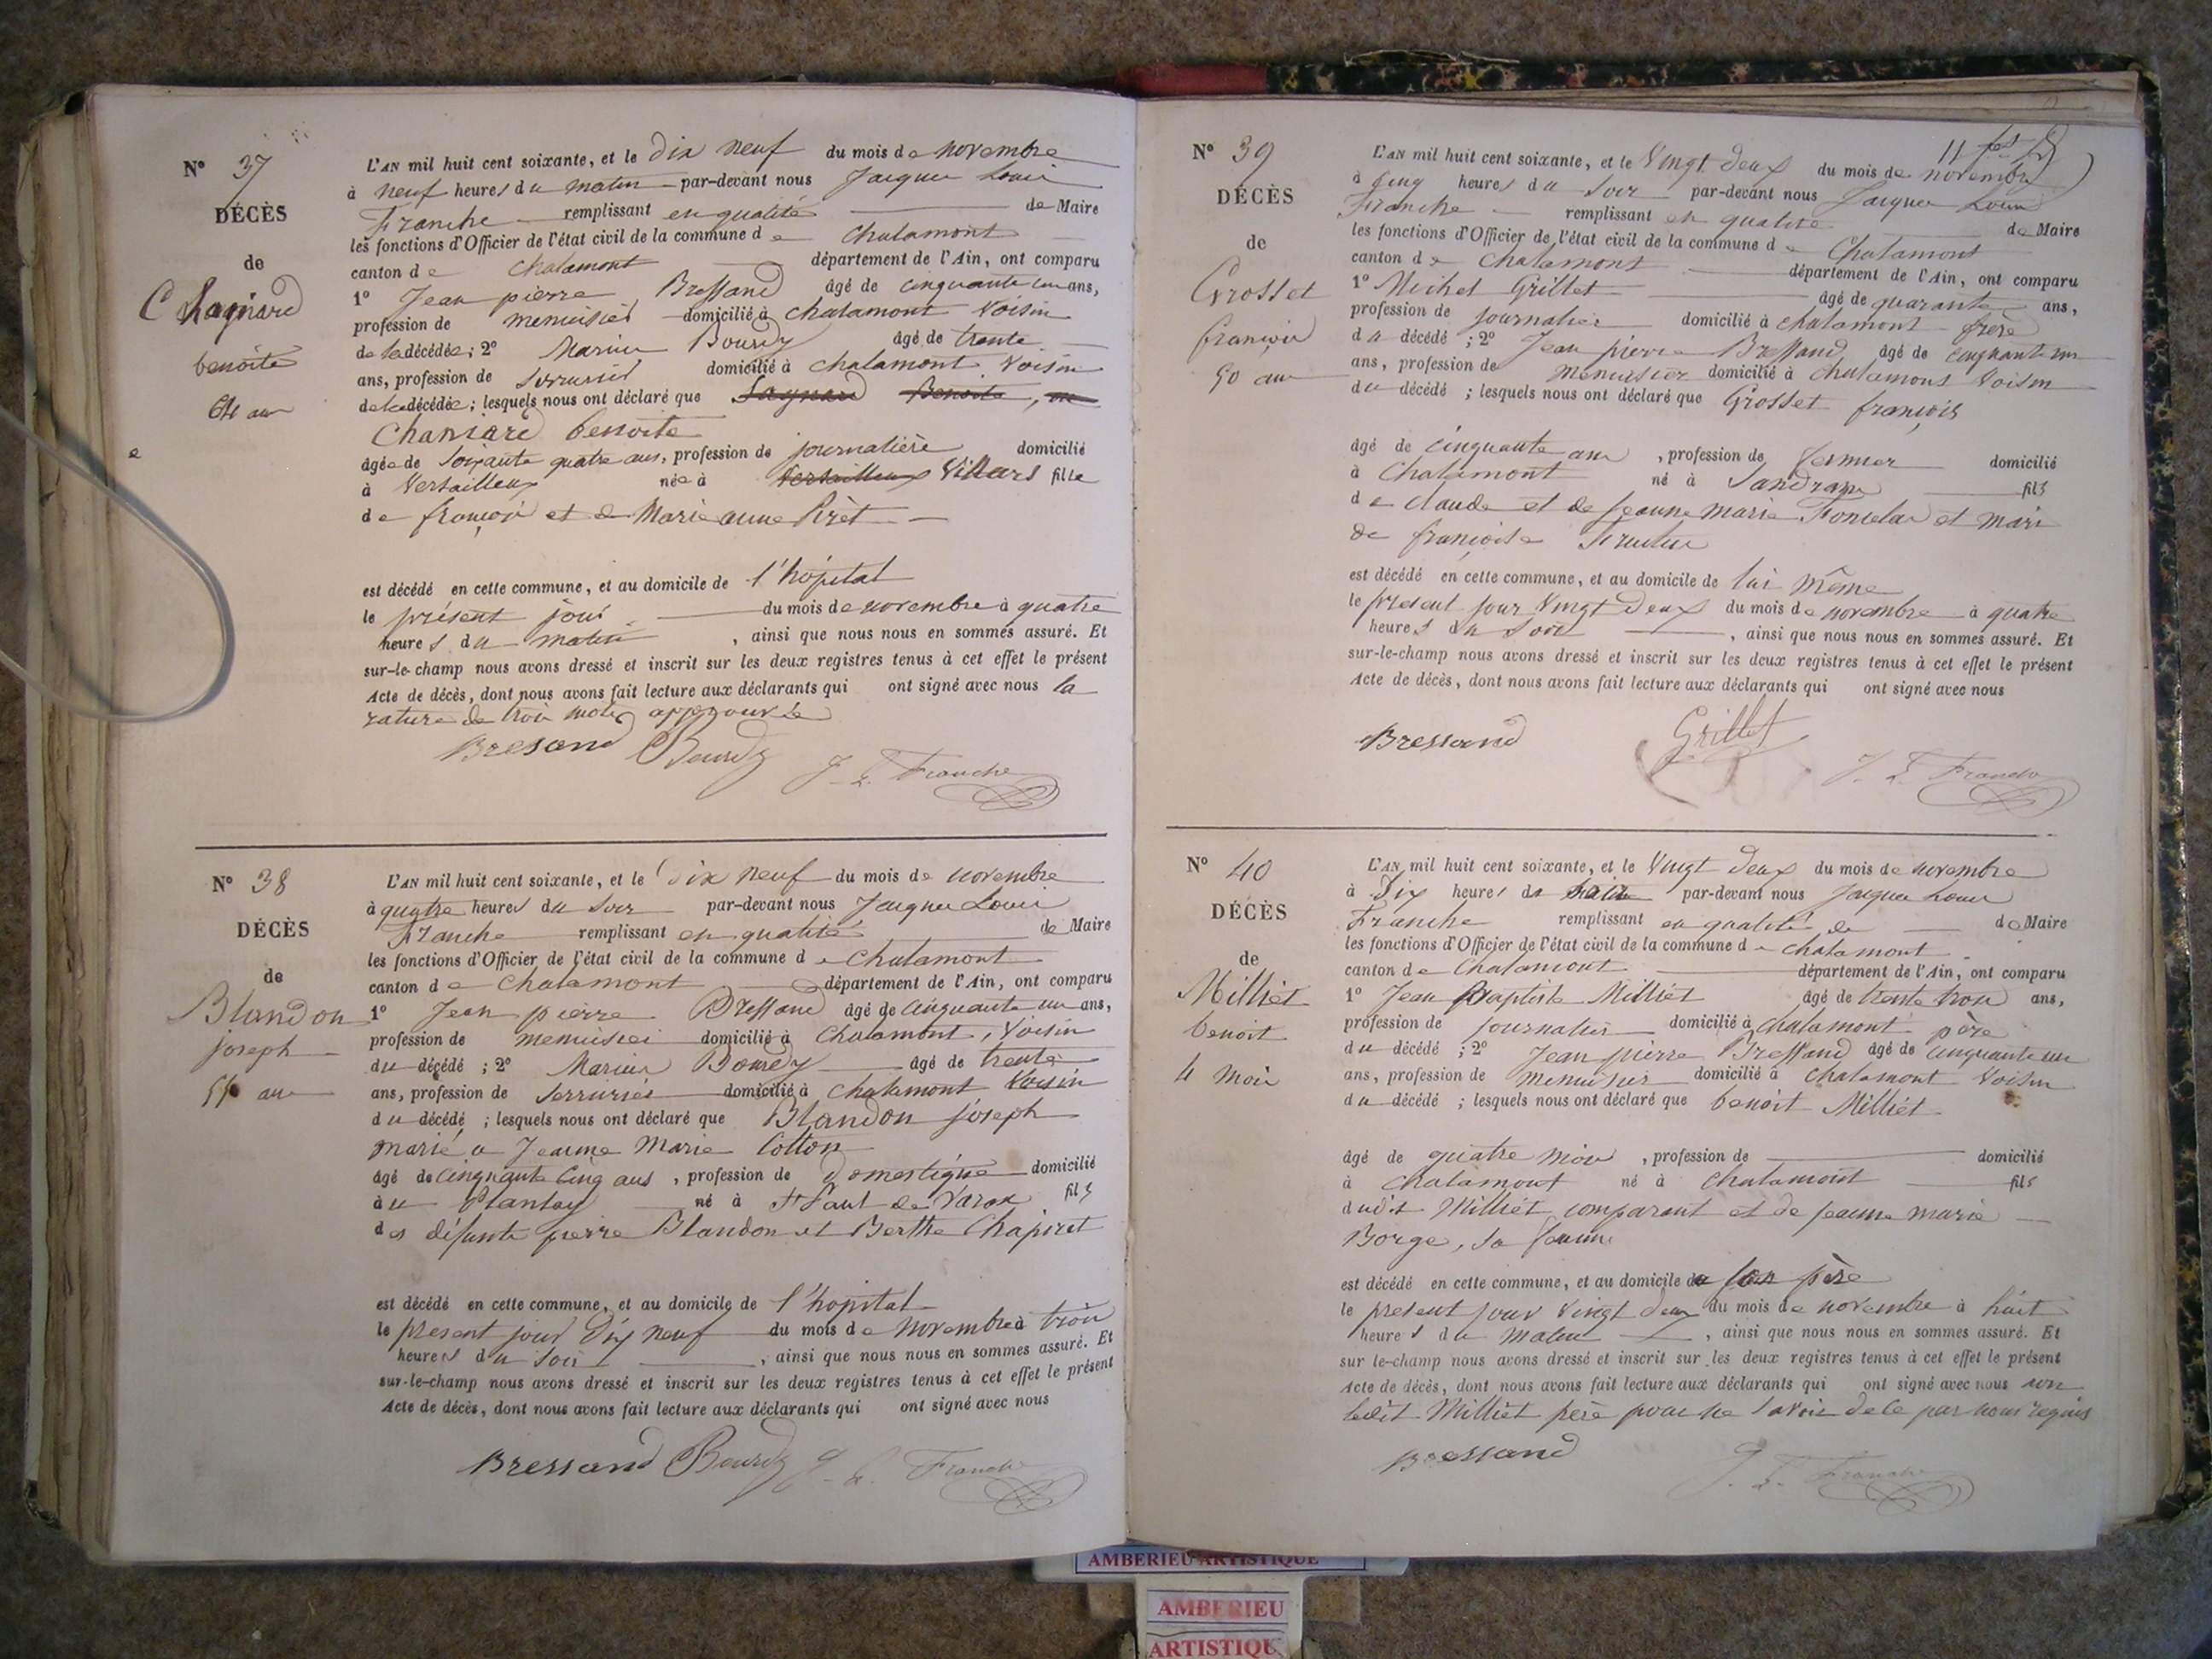 N° 37
DÉCÈS
de
Chagniard
benoite
64 ans
L'AN mil huit cent soixante, et le dix neuf du mois de novembre
à neuf heures du matin par-devant nous Jacques Louis
Franche remplissant en qualité de Maire
les fonctions d'Officier de l'état civil de la commune de Chalamont
canton de Chalamont département de l'Ain, ont comparu
1° Jean pierre Bressand âgé de cinquante un ans,
profession de menuisier domicilié à chalamont Voisin
de la décédée; 2° Marius Bourdy âgé de trente
ans, profession de Serrurier domicilié à chalamont Voisin
de la décédée; lesquels nous ont déclaré que
benoite
âgée de Soixante quatre ans, profession de journalière domicilié
à Versailleux née à Versailleux Villars fille
de françois et de Marie anne Piret
est décédé en cette commune, et au domicile de l'hôpital
le présent jour du mois de novembre à quatre
heures du matin, ainsi que nous nous en sommes assuré. Et
sur-le-champ nous avons dressé et inscrit sur les deux registres tenus à cet effet le présent
Acte de décès, dont nous avons fait lecture aux déclarants qui ont signé avec nous la
rature de trois mots approuvée
Bresand Bourdy J. L. Franche
N° 38
DÉCÈS
de
Blandon
joseph
55 ans
L'AN mil huit cent soixante, et le Dix neuf du mois de novembre
à quatre heures du soir par-devant nous Jacques Louis
Franche remplissant en qualité de Maire
les fonctions d'Officier de l'état civil de la commune de Chalamont
canton de Chalamont département de l'Ain, ont comparu
1° Jean pierre Bressand âgé de cinquante un ans,
profession de menuisier domicilié à Chalamont, Voisin
du décédé; 2° Marius Bourdy âgé de trente
ans, profession de Serrurier domicilié à Chalamont Voisin
du décédé; lesquels nous ont déclaré que Blandon joseph
marié a Jeanne Marie Cotton
âgé de cinquante cinq ans, profession de domestique domicilié
au Plantay né à St Paul de Varax fils
des défunts pierre Blandon et Berthe Chapiret
est décédé en cette commune, et au domicile de l'hopital
le present jour dix neuf du mois de novembre à trois
heures du soir, ainsi que nous nous en sommes assuré. Et
sur-le-champ nous avons dressé et inscrit sur les deux registres tenus à cet effet le présent
Acte de décès, dont nous avons fait lecture aux déclarants qui ont signé avec nous
Bressand Bourdy J. L. Franche
N° 39
DÉCÈS
de
Grosset
françois
50 ans
L'AN mil huit cent soixante, et le Vingt deux du mois de novembre
à cinq heures du soir par-devant nous Jacques Louis
Franche remplissant en qualité de Maire
les fonctions d'Officier de l'état civil de la commune de Chalamont
canton de Chalamont département de l'Ain, ont comparu
1° Michel Grillet âgé de quarante ans,
profession de journalier domicilié à chalamont frère
du décédé; 2° Jean pierre Bressand âgé de cinquante un
ans, profession de menuisier domicilié à chalamont Voisin
du décédé; lesquels nous ont déclaré que Grosset françois
âgé de cinquante ans, profession de fermier domicilié
à Chalamont né à Sandrans fils
de claude et de jeanne marie et mari
de françoise
est décédé en cette commune, et au domicile de lui même
le present jour Vingt Deux du mois de novembre à quatre
heures du soir, ainsi que nous nous en sommes assuré. Et
sur-le-champ nous avons dressé et inscrit sur les deux registres tenus à cet effet le présent
Acte de décès, dont nous avons fait lecture aux déclarants qui ont signé avec nous
Bressand Grillet J. L. Franche
N° 40
DÉCÈS
de
Milliet
benoit
4 mois
L'AN mil huit cent soixante, et le Vingt deux du mois de novembre
à Dix heures du par-devant nous Jacques Louis
Franche remplissant en qualité de de Maire
les fonctions d'Officier de l'état civil de la commune de chalamont
canton de Chalamont département de l'Ain, ont comparu
1° Jean Baptiste Milliet âgé de trente trois ans,
profession de journalier domicilié à chalamont père
du décédé; 2° Jean pierre Bressand âgé de cinquante un
ans, profession de menuisier domicilié à chalamont Voisin
du décédé; lesquels nous ont déclaré que benoit Milliet
âgé de quatre mois, profession de domicilié
à chalamont né à Chalamont fils
dudit Milliet comparant et de jeanne marie
Borge, sa femme
est décédé en cette commune, et au domicile de son père
le present jour vingt deux du mois de novembre à huit
heures du matin, ainsi que nous nous en sommes assuré. Et
sur le-champ nous avons dressé et inscrit sur les deux registres tenus à cet effet le présent
Acte de décès, dont nous avons fait lecture aux déclarants qui ont signé avec nous non
ledit Milliet père pour ne savoir de ce par nous requis
Bressand J. L. Franche
AMBERIEU ARTISTIQUE
AMBERIEU
ARTISTIQU